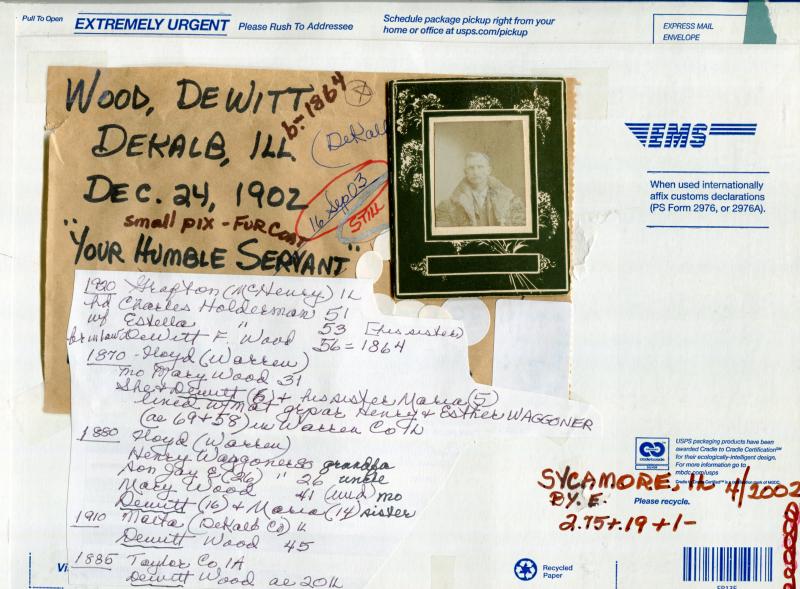 Pull To Open
EXTREMELY URGENT Please Rush To Addressee
Schedule package pickup right from your
home or office at usps.com/pickup
EXPRESS MAIL
ENVELOPE
WOOD, DEWITT
b-1864
DEKALB, ILL
(DeKalb
DEC. 24, 1902
16 Sep 03
STILL
small pix - FUR COAT
"YOUR HUMBLE SERVANT"
EMS
When used internationally
affix customs declarations
(PS Form 2976, or 2976A).
1920 Grafton (McHenry) IL
hd Charles Holderman 51
wf Estella " 53 [his sister]
br in law DeWitt F. Wood 56 = 1864
1870 - Floyd (Warren)
mo Mary Wood 31
She & Dewitt (6) + his sister Maria (5)
lived w/mat grpar Henry & Esther WAGGONER
(ae 69 + 58) in Warren Co IL
1880 Floyd (Warren)
Henry Waggoner 80 grandpa
Son Jay E (26) " 26 uncle
Mary Wood 41 (wid) mo
Dewitt (16) & Maria (14) sister
1910 Malta (DeKalb Co) IL
Dewitt Wood 45
1885 Taylor Co, IA
Dewitt Wood ae 20 IL
USPS packaging products have been
awarded Cradle to Cradle Certification
for their ecologically-intelligent design.
For more information go to
mbdc.com/usps
SYCAMORE, IL 4/2002
BY. E.
Please recycle.
2.75+.19+1-
Recycled
Paper